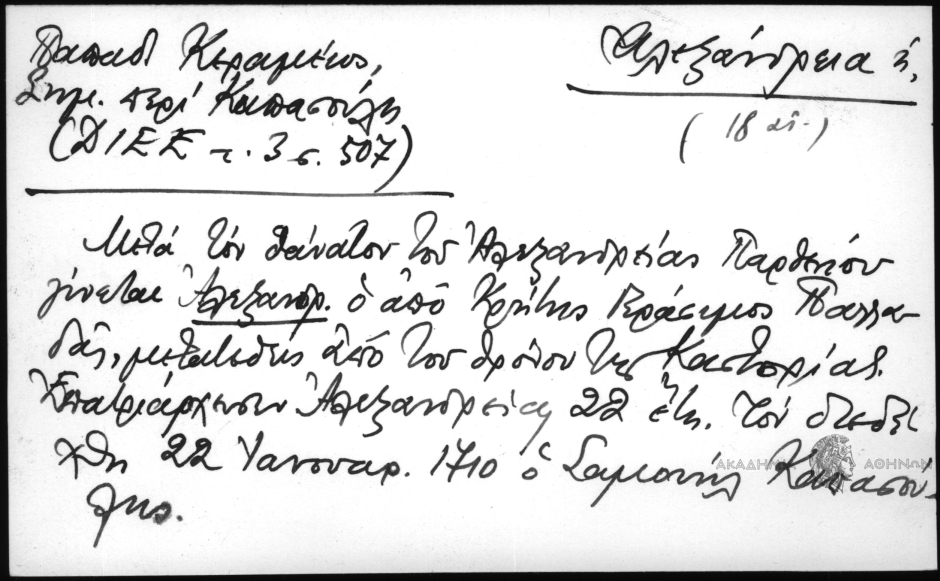 Παπαδ. Κεραμέως,
Σημ. περί Καπασούλη
(ΔΙΕΕ τ. 3 σ. 507)
Αλεξάνδρεια ἡ,
(18 αἰ.)
Μετά τόν θάνατον τοῦ Ἀλεξανδρείας Παρθενίου
γίνεται Ἀλεξανδρ. ὁ ἀπό Κρήτης Γεράσιμος Παλλα-
δᾶς, μετατεθείς ἀπό τοῦ θρόνου τῆς Καστοριᾶς.
Ἐπατριάρχευσεν Ἀλεξανδρείας 22 ἔτη. Τόν διεδέ
χθη 22 Ἰανουαρ. 1710 ὁ Σαμουήλ Καπασού-
λης.
ΑΚΑΔΗΜΙΑ ΑΘΗΝΩΝ